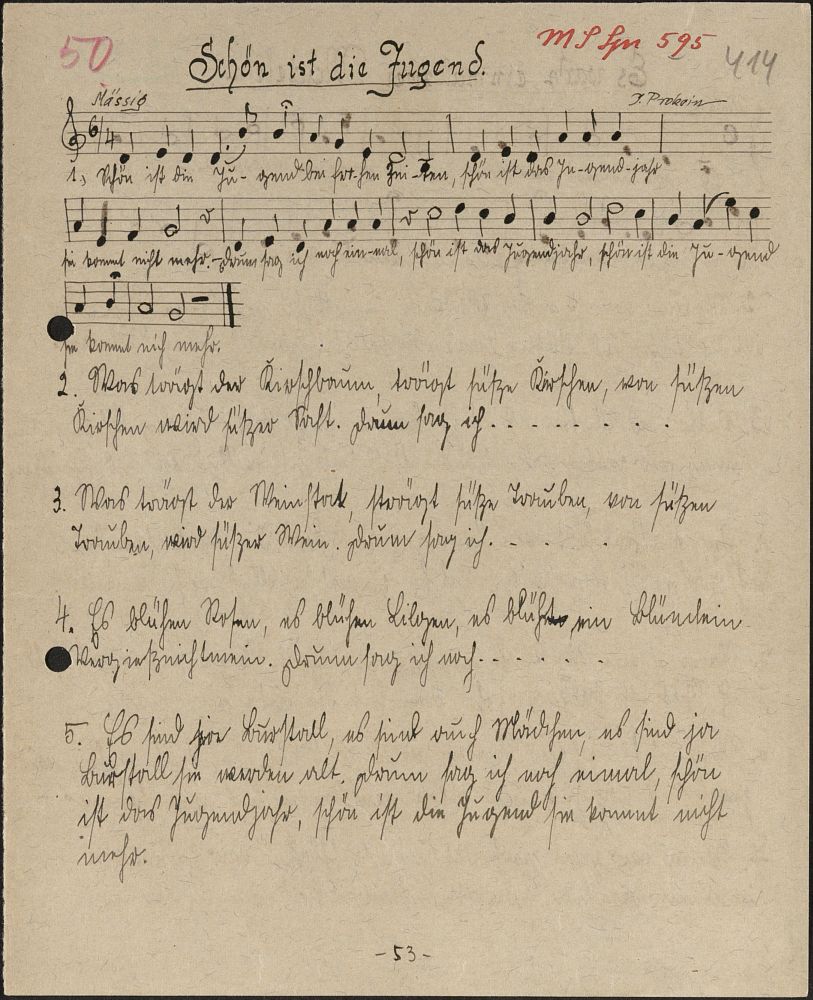 50
MS Spr 595
414
Schön ist die Jugend.
Mässig
J. Prokein
6/4
1.) Schön ist die Ju-gend bei fro-hen Zei-ten, schön ist das Ju-gend-jahr
sie kommt nicht mehr.- Drum sag ich noch ein-mal, schön ist das Jugendjahr, schön ist die Ju-gend
sie kommt nich mehr.
2. Was trägt der Kirschbaum, trägt süße Kirschen, von süßen
Kirschen wird süßer Saft. Drum sag ich . . . . . . . .
3. Was trägt der Weinstok, trägt süße Trauben, von süßen
Trauben, wird süßer Wein. Drum sag ich. - . . .
4. Es blühen Rosen, es blühen Lilgen, es blüht ein Blümlein
Vergießnichtmein. Drum sag ich noch. . . . . .
5. Es sind hie Burstall, es sind auch Mädchen, es sind ja
Burstall sie werden alt. Drum sag ich noch einmal, schön
ist das Jugendjahr, schön ist die Jugend sie kommt nicht
mehr.
- 53 -